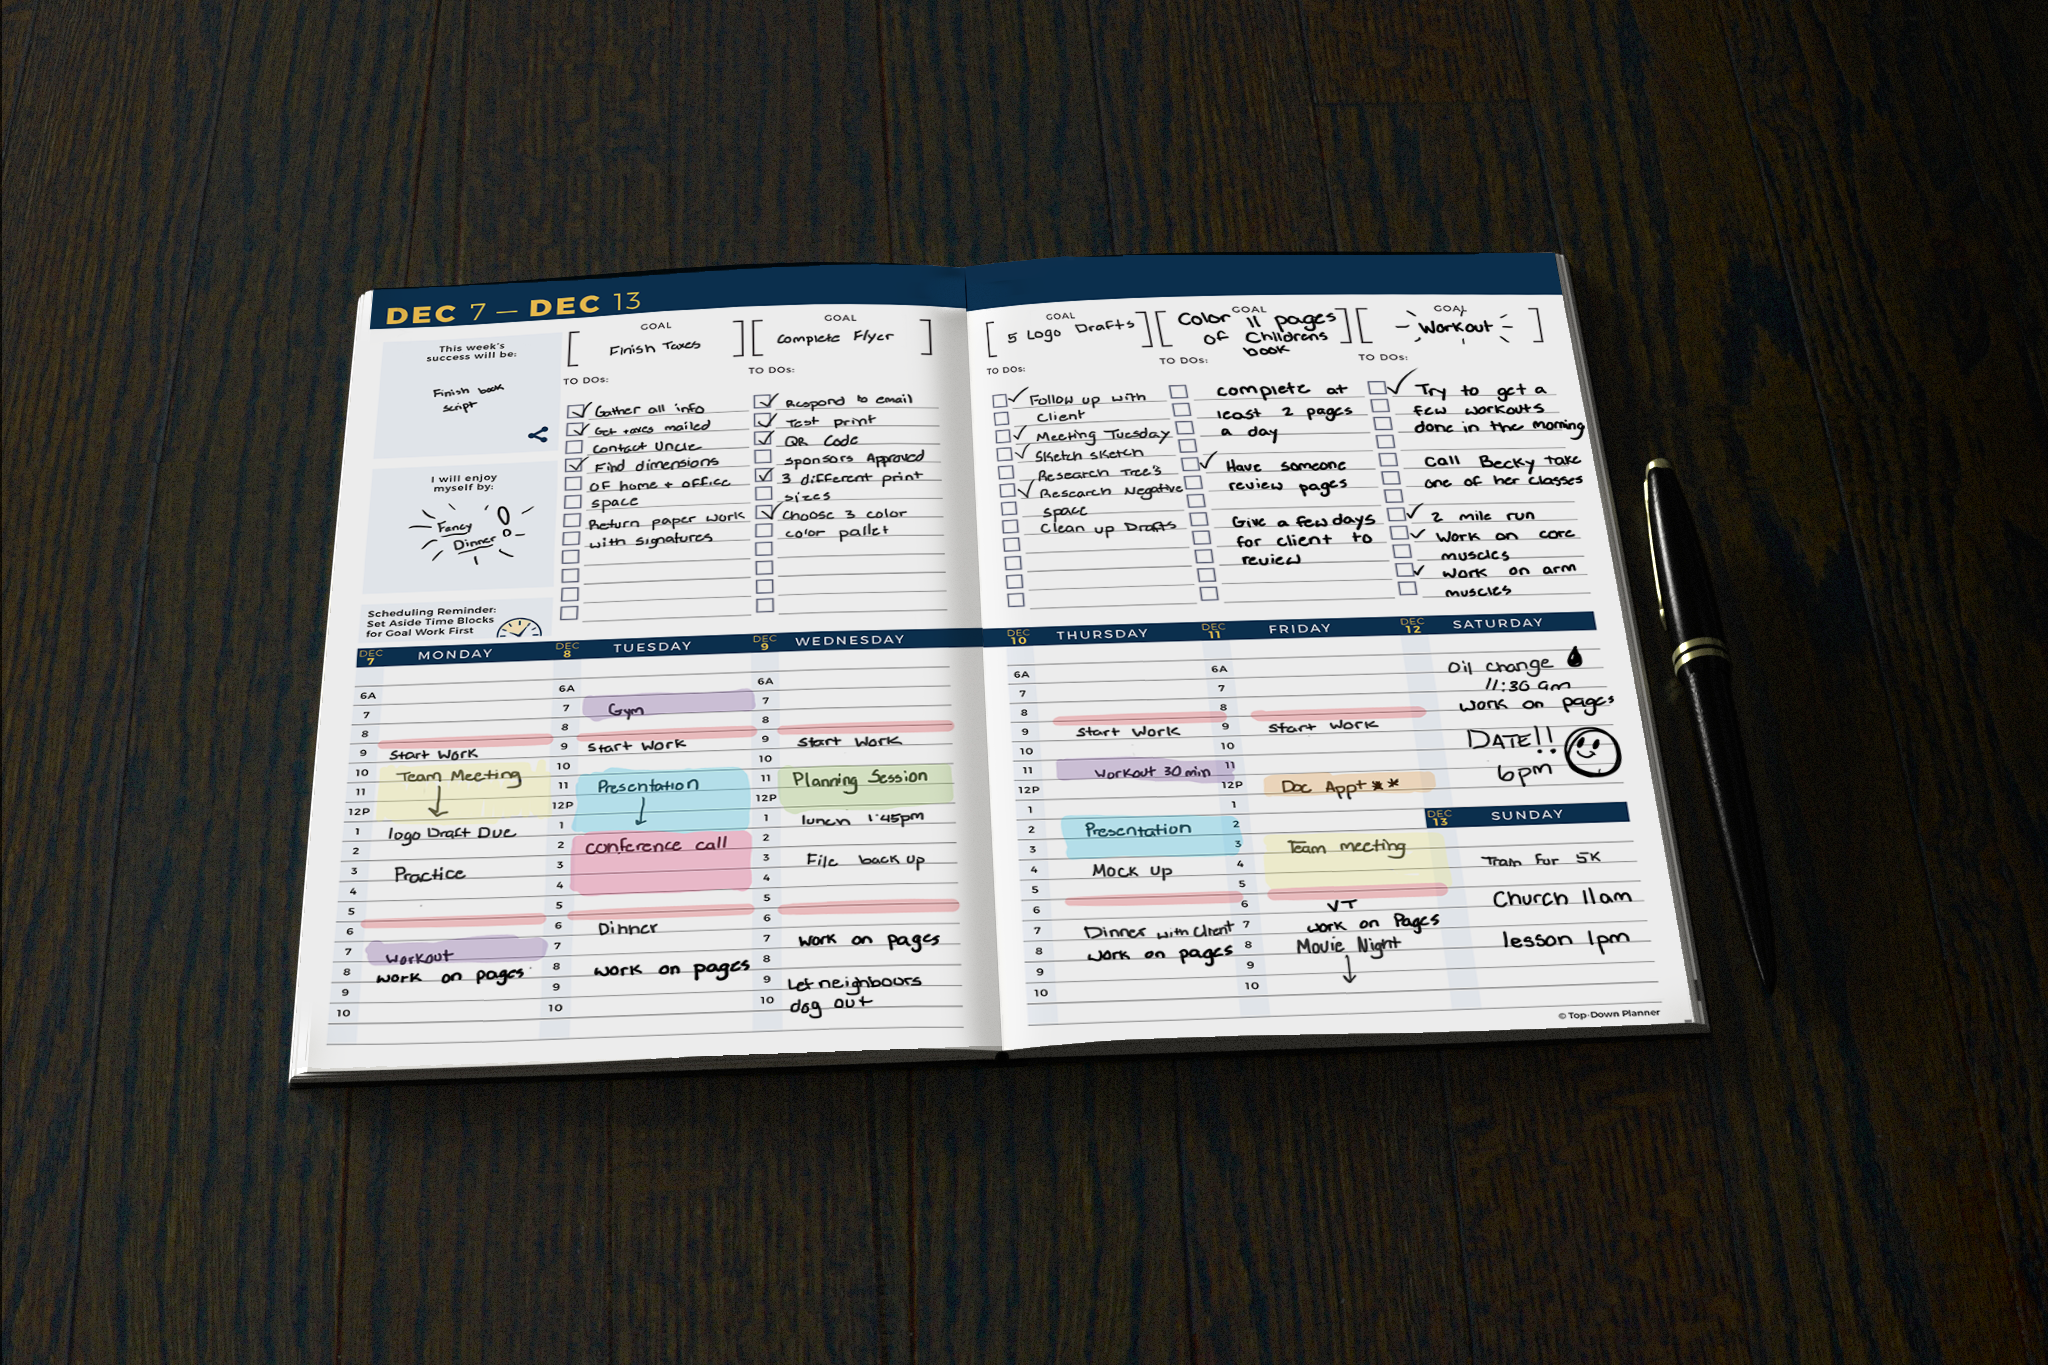 DEC 7 — DEC 13
This week's
success will be:
Finish book
script
I will enjoy
myself by:
Fancy
Dinner
Scheduling Reminder:
Set Aside Time Blocks
for Goal Work First
GOAL
Finish Taxes
TO DOs:
Gather all info
Get taxes mailed
contact Uncle
Find dimensions
of home + office
space
Return paper work
with signatures
GOAL
Complete Flyer
TO DOs:
Respond to email
Test print
QR Code
sponsors Approved
3 different print
sizes
Choose 3 color
color pallet
GOAL
5 Logo Drafts
TO DOs:
Follow up with
Client
Meeting Tuesday
Sketch sketch
Research Tree's
Research Negative
space
Clean up Drafts
GOAL
Color 11 pages
of Childrens
book
TO DOs:
complete at
least 2 pages
a day
Have someone
review pages
Give a few days
for client to
review
GOAL
Workout
TO DOs:
Try to get a
few workouts
done in the morning
Call Becky take
one of her classes
2 mile run
Work on core
muscles
work on arm
muscles
DEC
7
MONDAY
6A
7
8
9 Start Work
10 Team Meeting
11
12P
1 logo Draft Due
2
3 Practice
4
5
6
7 Workout
8 work on pages
9
10
DEC
8
TUESDAY
6A
7 Gym
8
9 Start Work
10
11 Presentation
12P
1
2 conference call
3
4
5
6 Dinner
7
8 work on pages
9
10
DEC
9
WEDNESDAY
6A
7
8
9 Start Work
10
11 Planning Session
12P
1 lunch 1:45pm
2
3 File back up
4
5
6
7 work on pages
8
9 Let neighbours
10 dog out
DEC
10
THURSDAY
6A
7
8
9 Start Work
10
11 Workout 30 min
12P
1
2 Presentation
3
4 Mock up
5
6
7 Dinner with Client
8 work on pages
9
10
DEC
11
FRIDAY
6A
7
8
9 Start Work
10
11
12P Doc Appt **
1
2
3 Team meeting
4
5
6 VT
7 work on Pages
8 Movie Night
9
10
DEC
12
SATURDAY
Oil change
11:30 am
work on pages
DATE!!
6pm
DEC
13
SUNDAY
Train for 5K
Church 11am
lesson 1pm
© Top-Down Planner